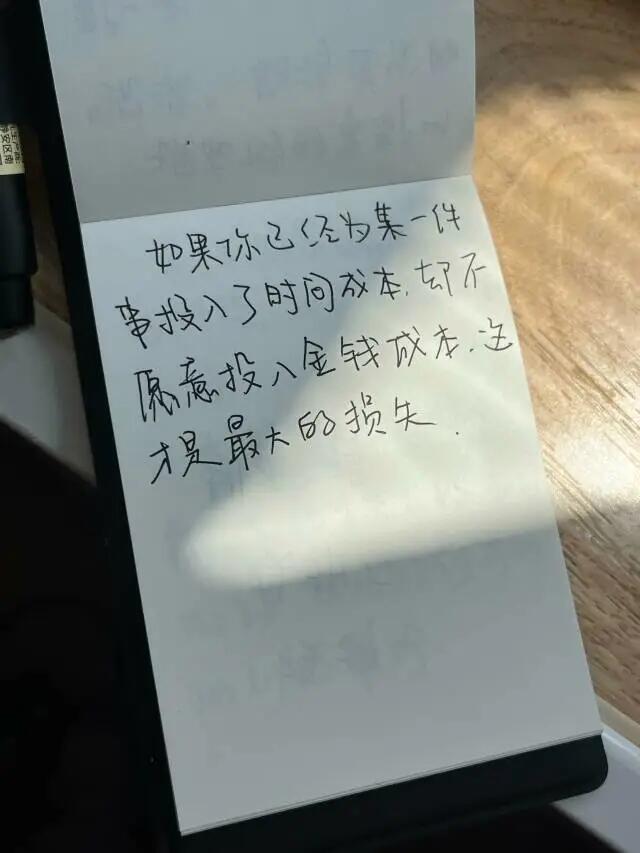 如果你已经为某一件
事投入了时间成本,却不
愿意投入金钱成本,这
才是最大的损失.